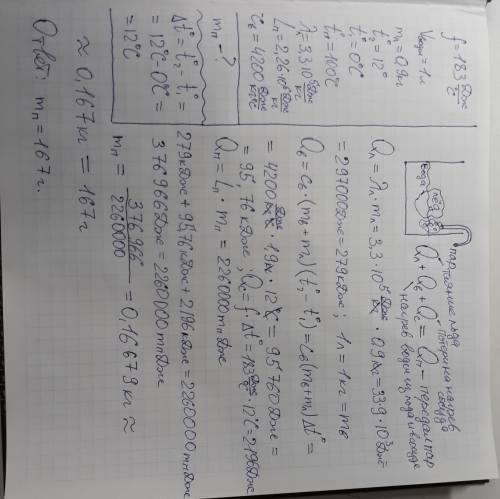 f = 183 Дж/°C
Vводы = 1л
mл = 0,9кг
t₂° = 12°
t₁° = 0°C
tп° = 100°C
λл = 3,3·10⁵ Дж/кг
Lп = 2,26·10⁶ Дж/кг
Cв = 4200 Дж/кг°C
mп - ?
Δt° = t₂° - t₁° =
= 12°C - 0°C =
= 12°C
пар
таяние льда
потери на нагрев
сосуда
вода
лёд
Qл + Qв + Qс = Qп - передал пар
нагрев воды из льда и в сосуде
Qл = λл · mл = 3,3·10⁵ Дж/кг · 0,9кг = 339·10³ Дж
= 297000 Дж = 279 кДж; 1л = 1кг = mв
Qв = Cв · (mв + mл)(t₂° - t₁°) = Cв(mв + mл)Δt° =
= 4200 Дж/кг°C · 1,9кг · 12°C = 95760 Дж =
= 95,76 кДж; Qс = f · Δt° = 183 Дж/°C · 12°C = 2196 Дж
Qп = Lп · mп = 2260000 mп Дж
279 кДж + 95,76 кДж + 2,196 кДж = 2260000 mп Дж
376966 Дж = 2260000 mп Дж
mп = 376 966 / 2260000 = 0,16679 кг ≈
≈ 0,167 кг = 167 г
Ответ: mп = 167 г.